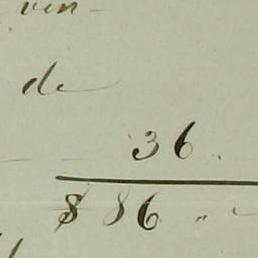 ven-
de
36
$ 86 "